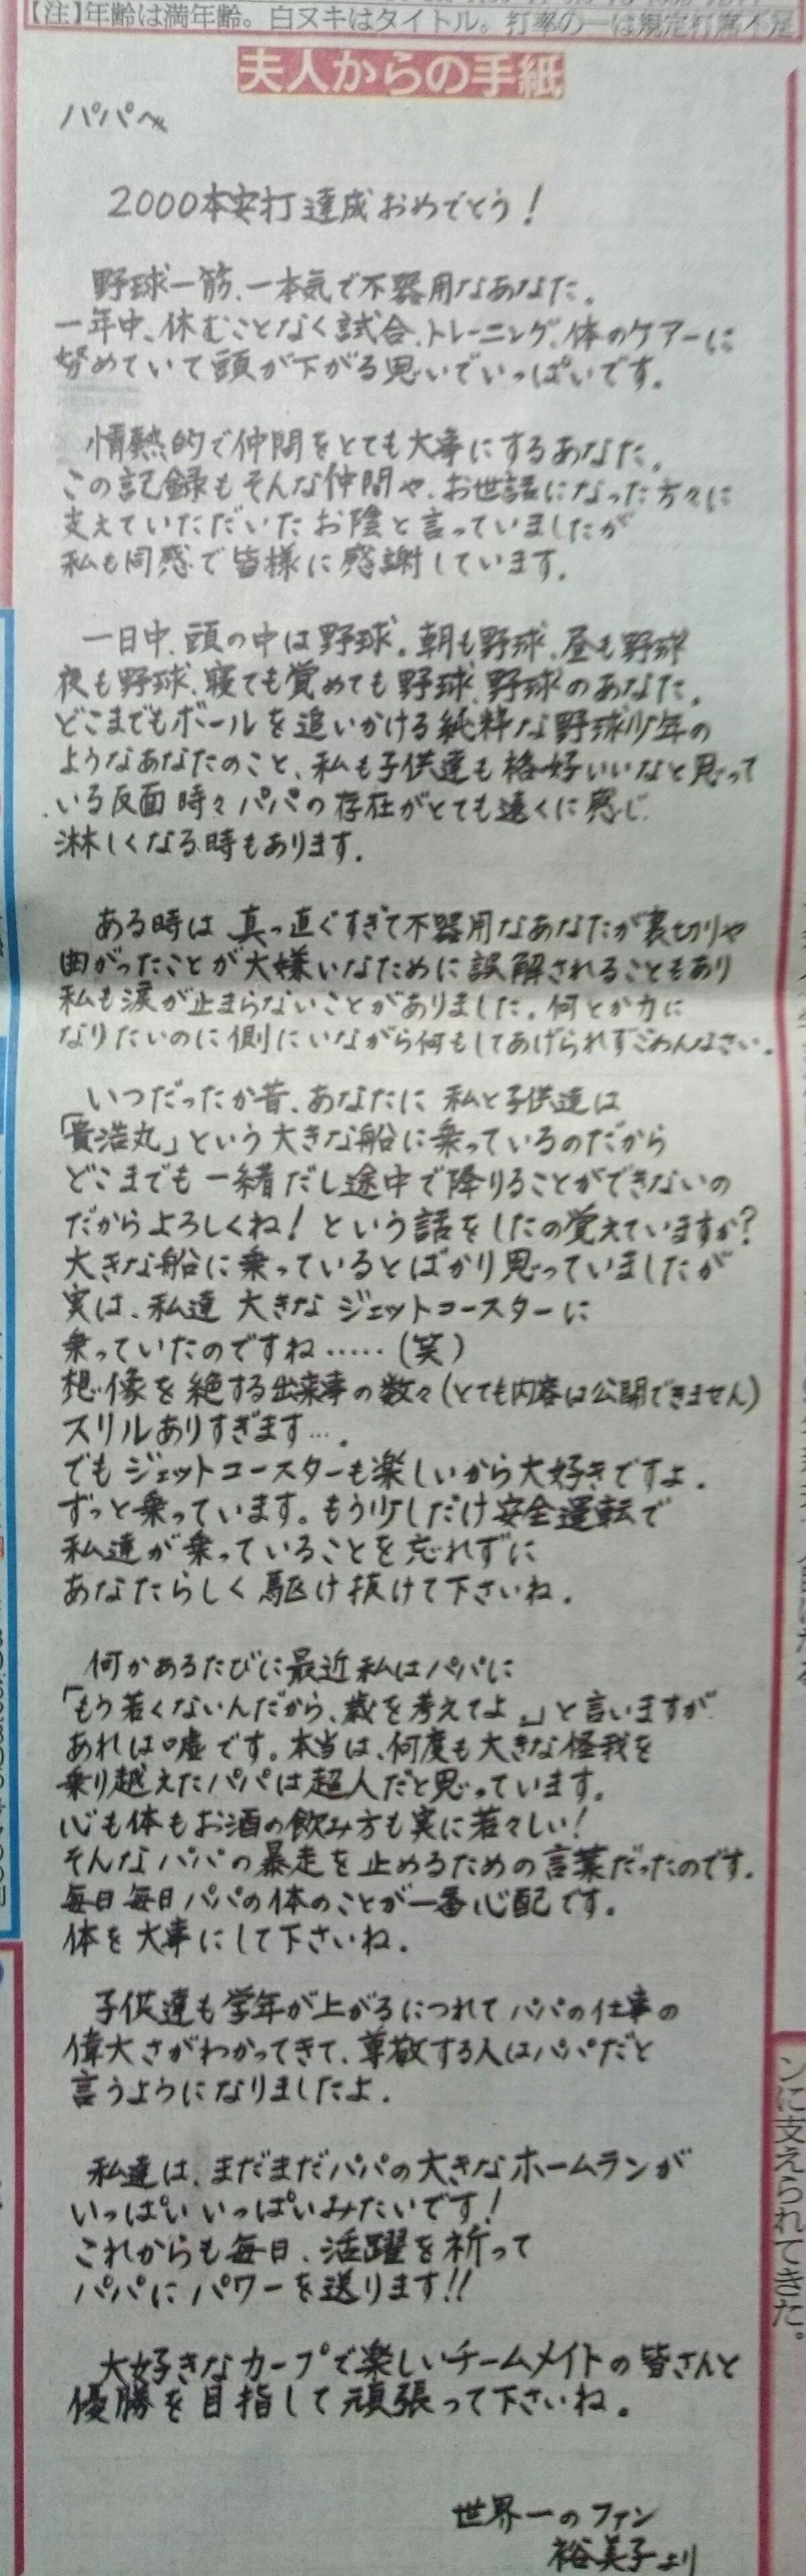 【注】年齢は満年齢。白ヌキはタイトル。打率の―は規定打席不足
夫人からの手紙
パパへ
2000本安打達成おめでとう!
野球一筋、一本気で不器用なあなた。
一年中、休むことなく試合、トレーニング、体のケアーに
努めていて頭が下がる思いでいっぱいです。
情熱的で仲間をとても大事にするあなた。
この記録もそんな仲間や、お世話になった方々に
支えていただいたお陰と言っていましたが
私も同感で皆様に感謝しています。
一日中、頭の中は野球。朝も野球、昼も野球
夜も野球、寝ても覚めても野球、野球のあなた。
どこまでもボールを追いかける純粋な野球少年の
ようなあなたのこと、私も子供達も格好いいなと思って
いる反面時々パパの存在がとても遠くに感じ
淋しくなる時もあります。
ある時は真っ直ぐすぎて不器用なあなたが裏切りや
曲がったことが大嫌いなために誤解されることもあり
私も涙が止まらないことがありました。何とか力に
なりたいのに側にいながら何もしてあげられずごめんなさい。
いつだったか昔、あなたに私と子供達は
「貴浩丸」という大きな船に乗っているのだから
どこまでも一緒だし途中で降りることができないの
だからよろしくね!という話をしたの覚えていますか?
大きな船に乗っているとばかり思っていましたが
実は、私達大きなジェットコースターに
乗っていたのですね……(笑)
想像を絶する出来事の数々(とても内容は公開できません)
スリルありすぎます…。
でもジェットコースターも楽しいから大好きですよ。
ずっと乗っています。もう少しだけ安全運転で
私達が乗っていることを忘れずに
あなたらしく駆け抜けて下さいね。
何かあるたびに最近私はパパに
「もう若くないんだから、歳を考えてよ。」と言いますが
あれは嘘です。本当は、何度も大きな怪我を
乗り越えたパパは超人だと思っています。
心も体もお酒の飲み方も実に若々しい!
そんなパパの暴走を止めるための言葉だったのです。
毎日毎日パパの体のことが一番心配です。
体を大事にして下さいね。
子供達も学年が上がるにつれてパパの仕事の
偉大さがわかってきて、尊敬する人はパパだと
言うようになりましたよ。
私達は、まだまだパパの大きなホームランが
いっぱいいっぱいみたいです!
これからも毎日、活躍を祈って
パパにパワーを送ります!!
大好きなカープで楽しいチームメイトの皆さんと
優勝を目指して頑張って下さいね。
世界一のファン
裕美子より
ンに支えられてきた。